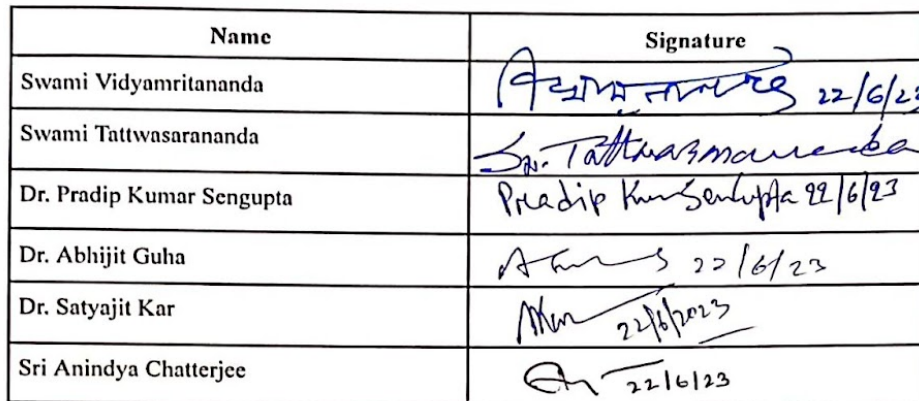 Name Signature
Swami Vidyamritananda 22/6/23
Swami Tattwasarananda Sw. Tattwasarananda
Dr. Pradip Kumar Sengupta Pradip Kum Sengupta 22/6/23
Dr. Abhijit Guha 22/6/23
Dr. Satyajit Kar 22/6/2023
Sri Anindya Chatterjee 22/6/23